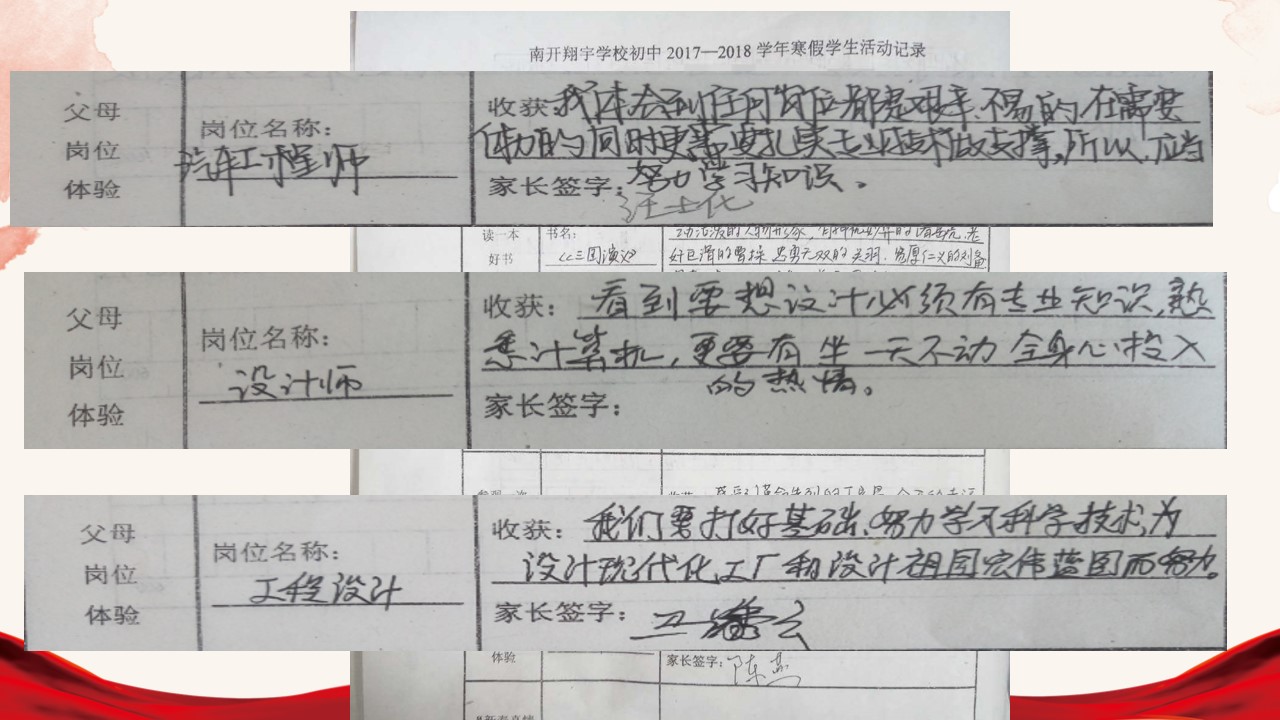 南开翔宇学校初中 2017—2018 学年寒假学生活动记录
父母
岗位
体验
岗位名称：
汽车工程师
收获：我体会到任何岗位都是艰辛、不易的，在需要
体力的同时更需要扎实专业技术做支撑，所以，应当
努力学习知识。
家长签字：
读一本
好书
书名：
《三国演义》
奸巨滑的曹操，忠勇无双的关羽，宽厚仁义的刘备
父母
岗位
体验
岗位名称：
设计师
收获：看到要想设计必须有专业知识，熟
悉计算机，更要有坐一天不动全身心投入
的热情。
家长签字：
父母
岗位
体验
岗位名称：
工程设计
收获：我们要打好基础，努力学习科学技术，为
设计现代化工厂和设计祖国宏伟蓝图而努力。
家长签字：
体验
家长签字：